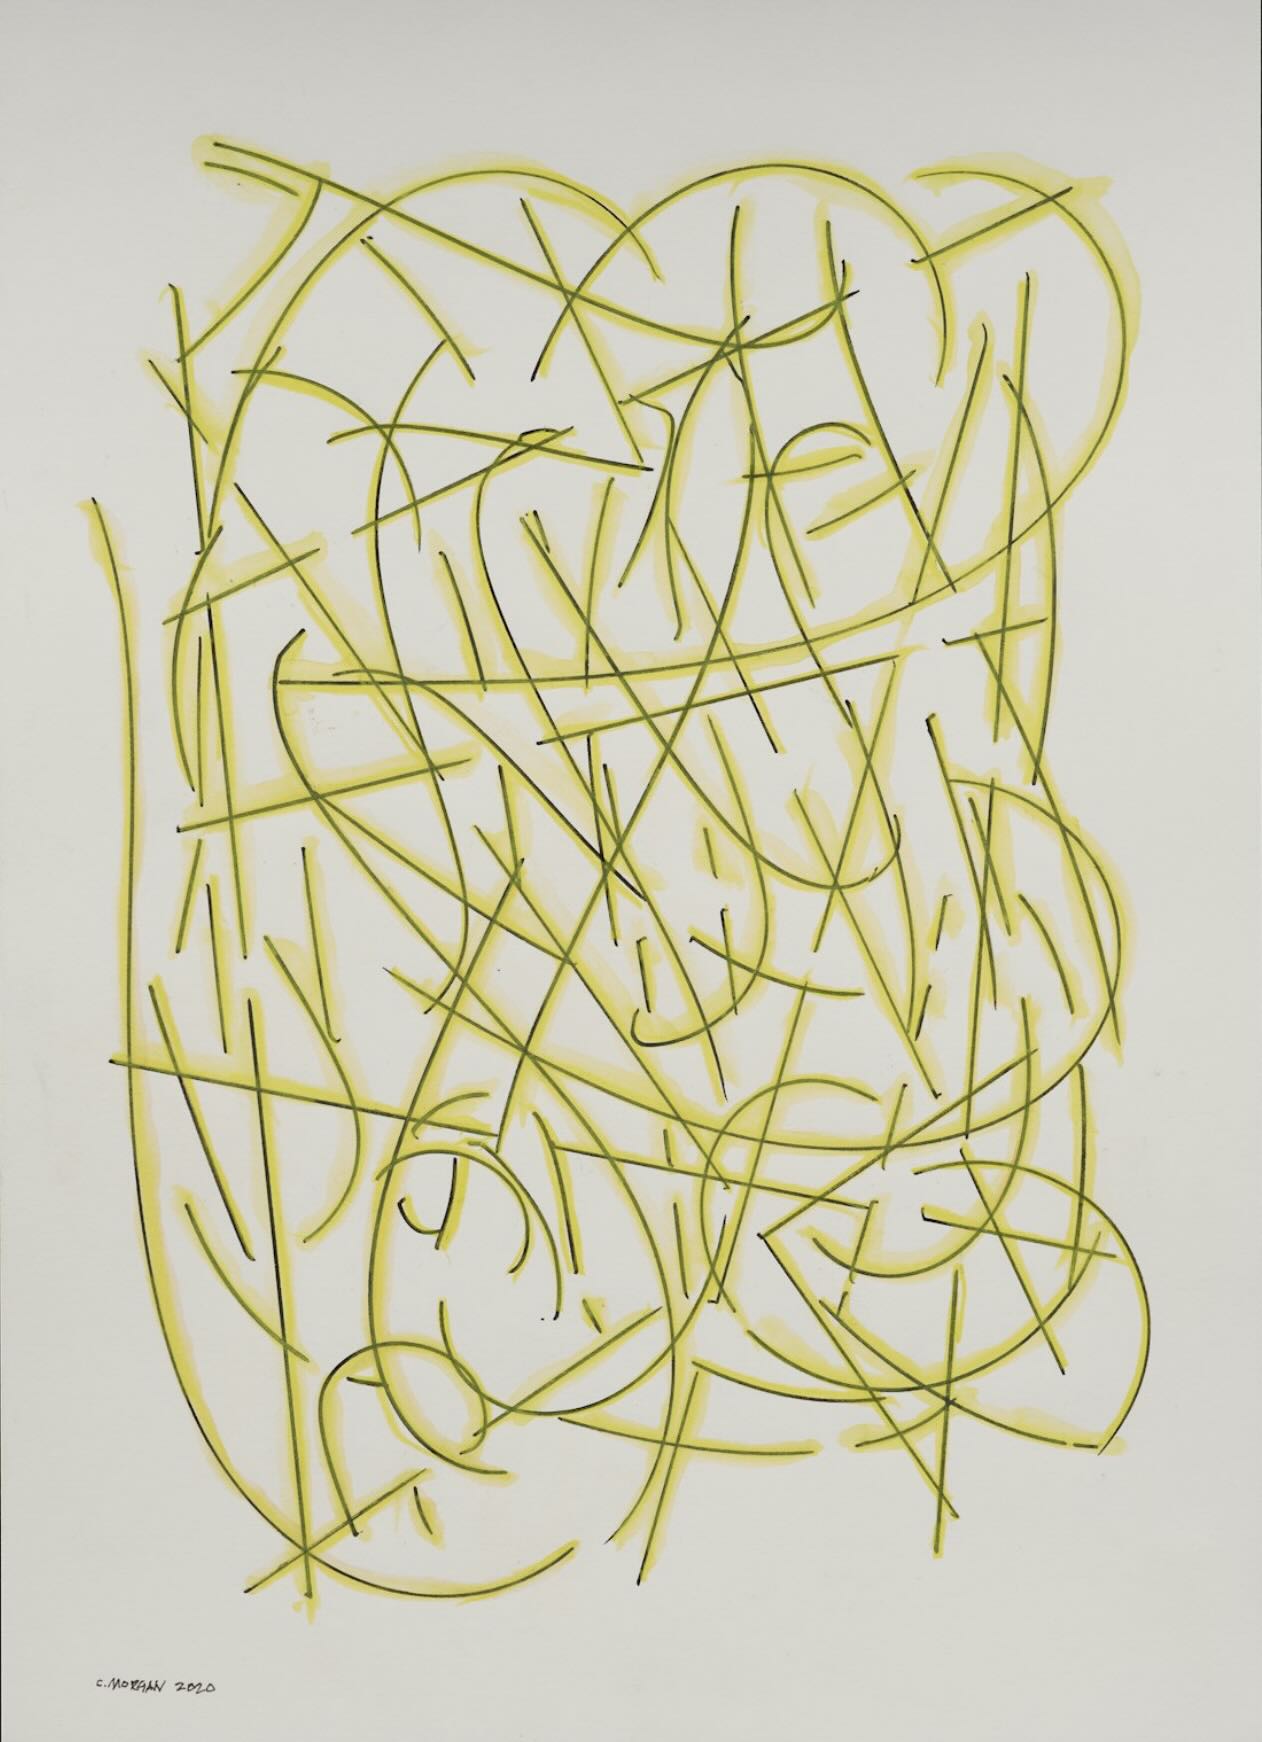 C. MORGAN 2020